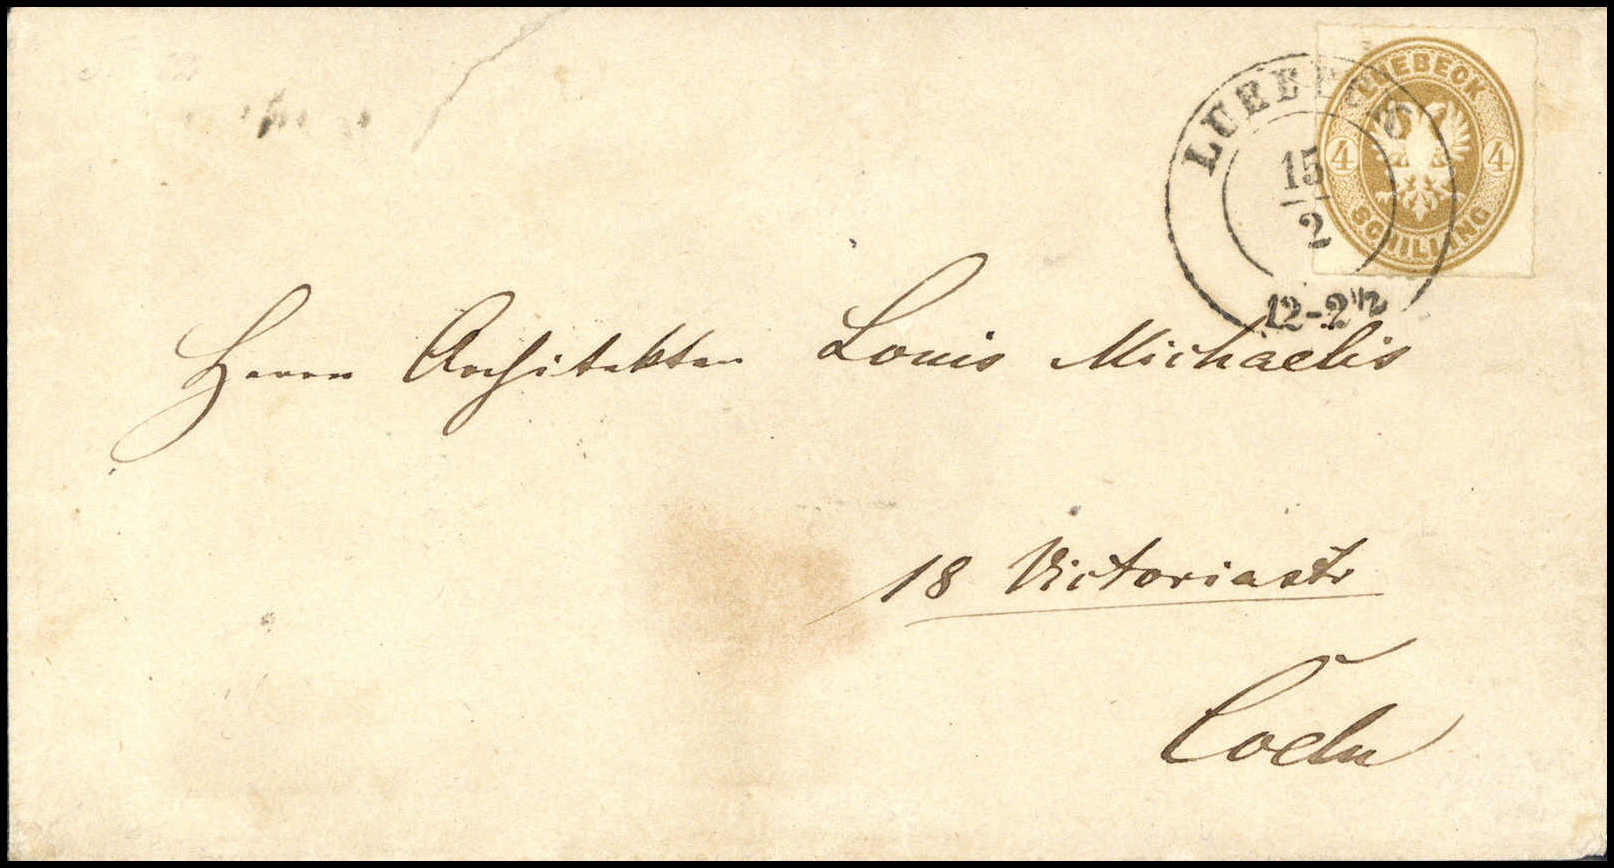 LUEBECK
LUEBECK
4 4
SCHILLING
15
2
12-2½
Herrn Architekten Louis Michaelis
18 Victoriastr
Coeln